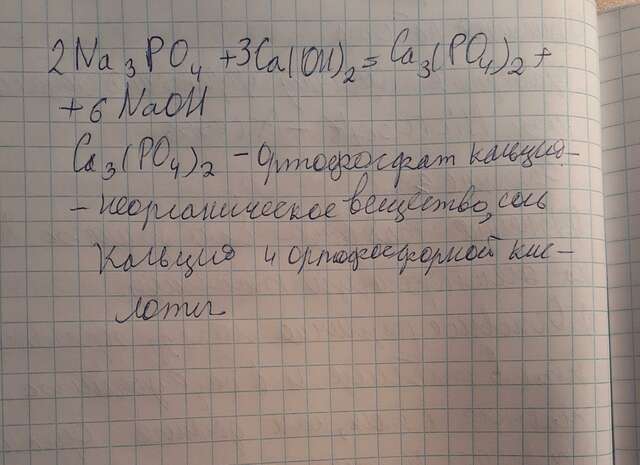 2Na₃PO₄ + 3Ca(OH)₂ = Ca₃(PO₄)₂ +
+ 6 NaOH
Ca₃(PO₄)₂ - Ортофосфат кальция -
- неорганическое вещество, соль
кальция и ортофосфорной кис-
лоты